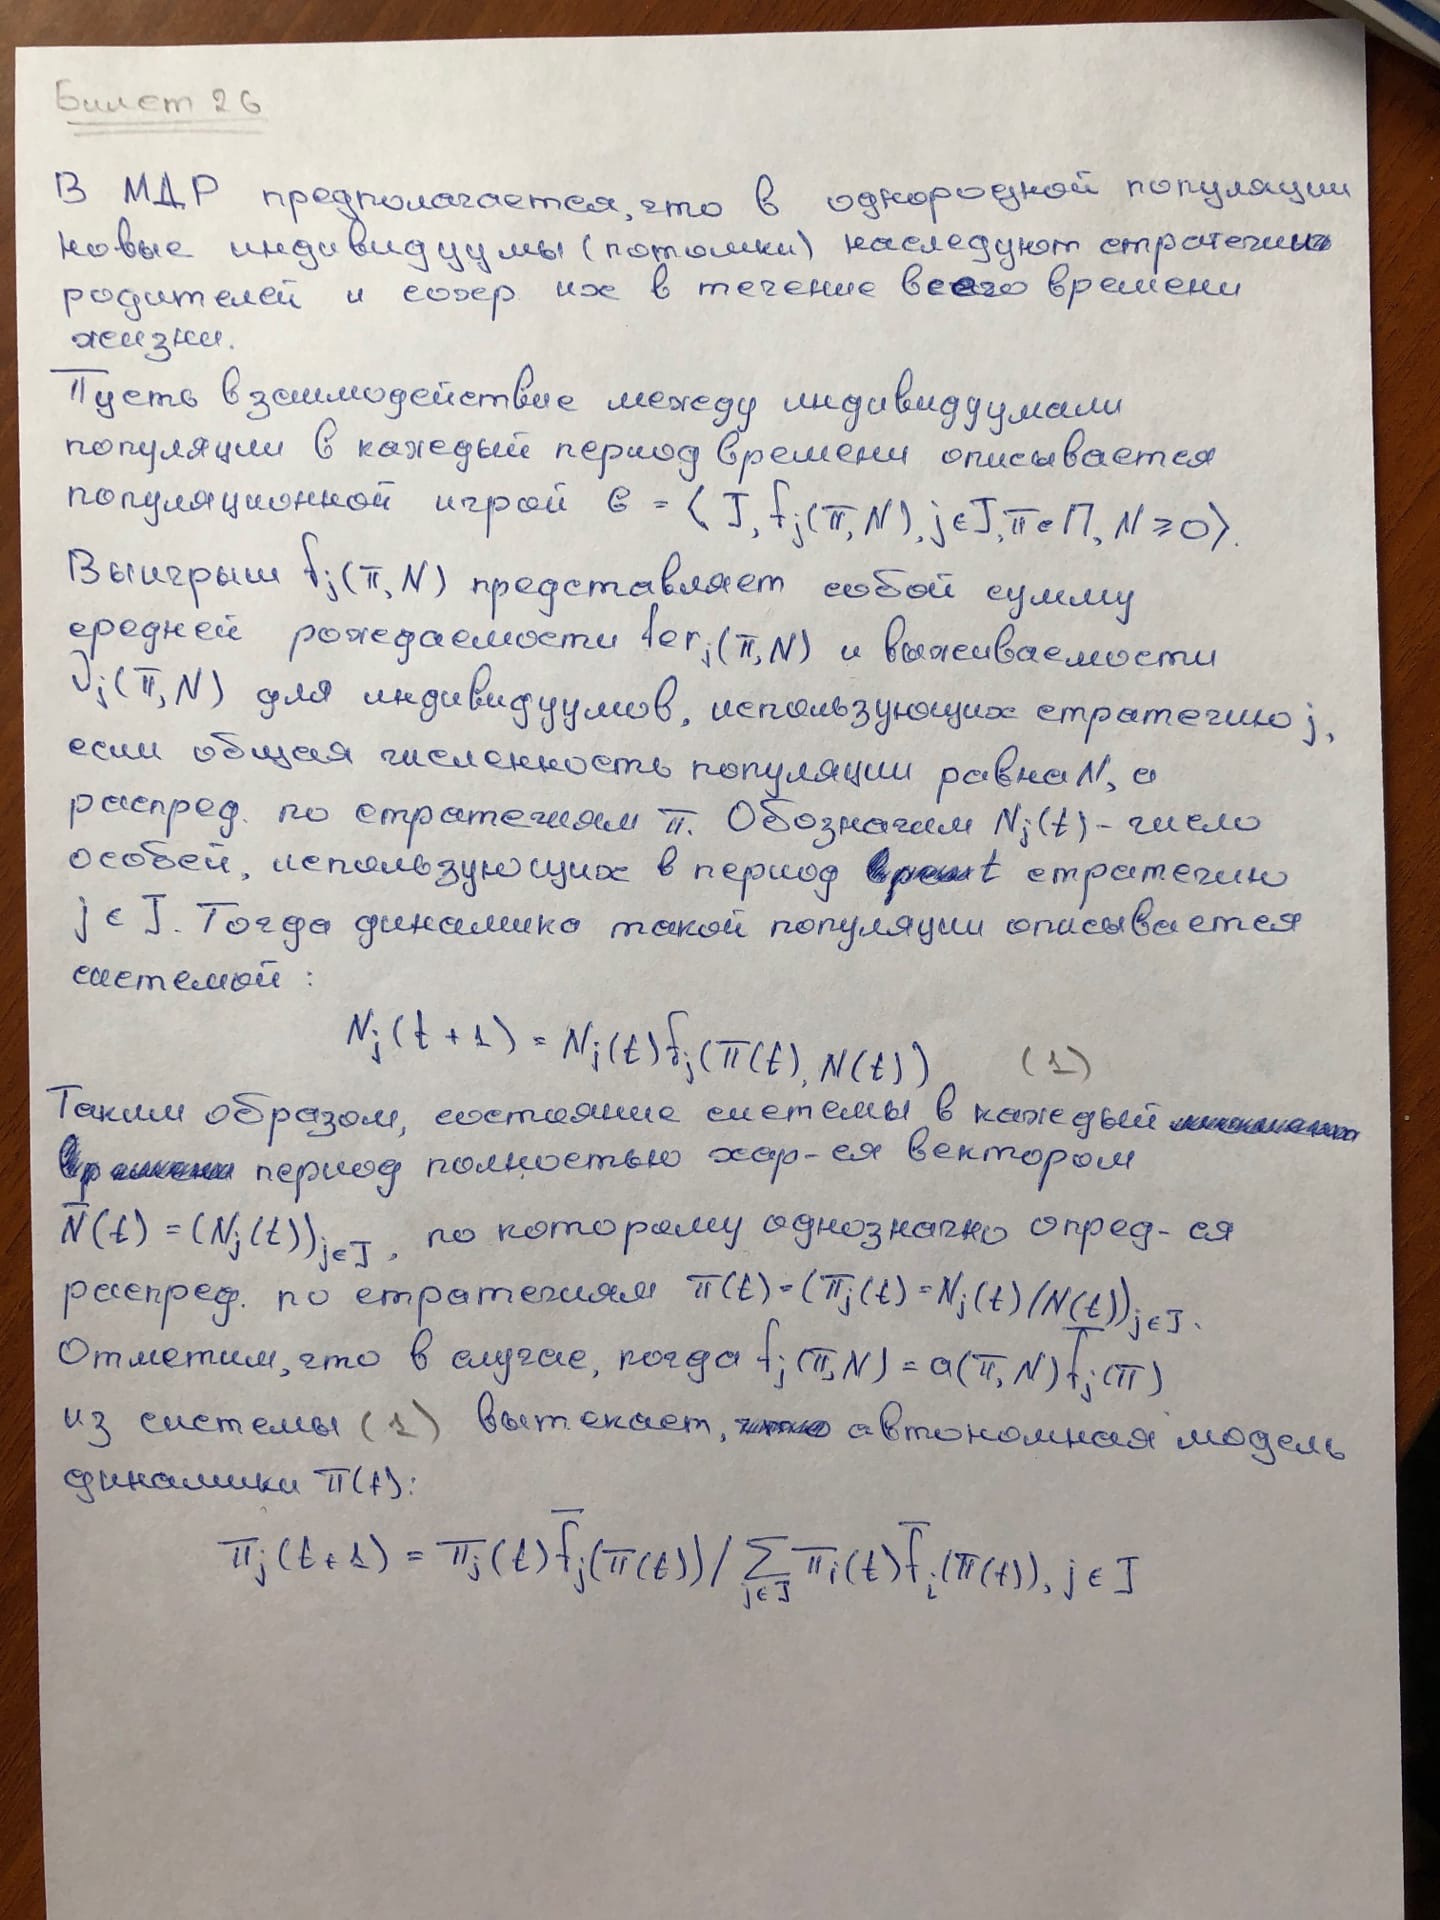 Билет 26
В МДР предполагается, что в однородной популяции
новые индивидуумы (потомки) наследуют стратегии
родителей и сохр их в течение всего времени
жизни.
Пусть взаимодействие между индивидуумами
популяции в каждый период времени описывается
популяционной игрой G = ⟨J, fj(π, N), j∈J, π∈Π, N ≥ 0⟩.
Выигрыш fj(π, N) представляет собой сумму
средней рождаемости ferj(π, N) и выживаемости
νj(π, N) для индивидуумов, использующих стратегию j,
если общая численность популяции равна N, а
распред. по стратегиям π. Обозначим Nj(t) - число
особей, использующих в период t стратегию
j ∈ J. Тогда динамика такой популяции описывается
системой:
Nj(t+1) = Nj(t)fj(π(t), N(t)) (1)
Таким образом, состояние системы в каждый
период полностью хар-ся вектором
N̅(t) = (Nj(t))j∈J, по которому однозначно опред-ся
распред. по стратегиям π(t) = (πj(t) = Nj(t)/N(t))j∈J.
Отметим, что в случае, когда fj(π,N) = a(π, N)f̅j(π)
из системы (1) вытекает, автономная модель
динамики π(t):
πj(t+1) = πj(t)f̅j(π(t))/∑j∈J πi(t)f̅i(π(t)), j ∈ J